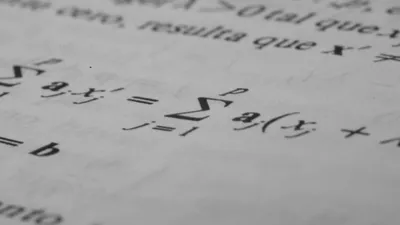 > 0 tal que x
cero, resulta que x' ≠
∑ a_j x'_j = ∑_{j=1}^{p} a_j (x_j +
= b
nto